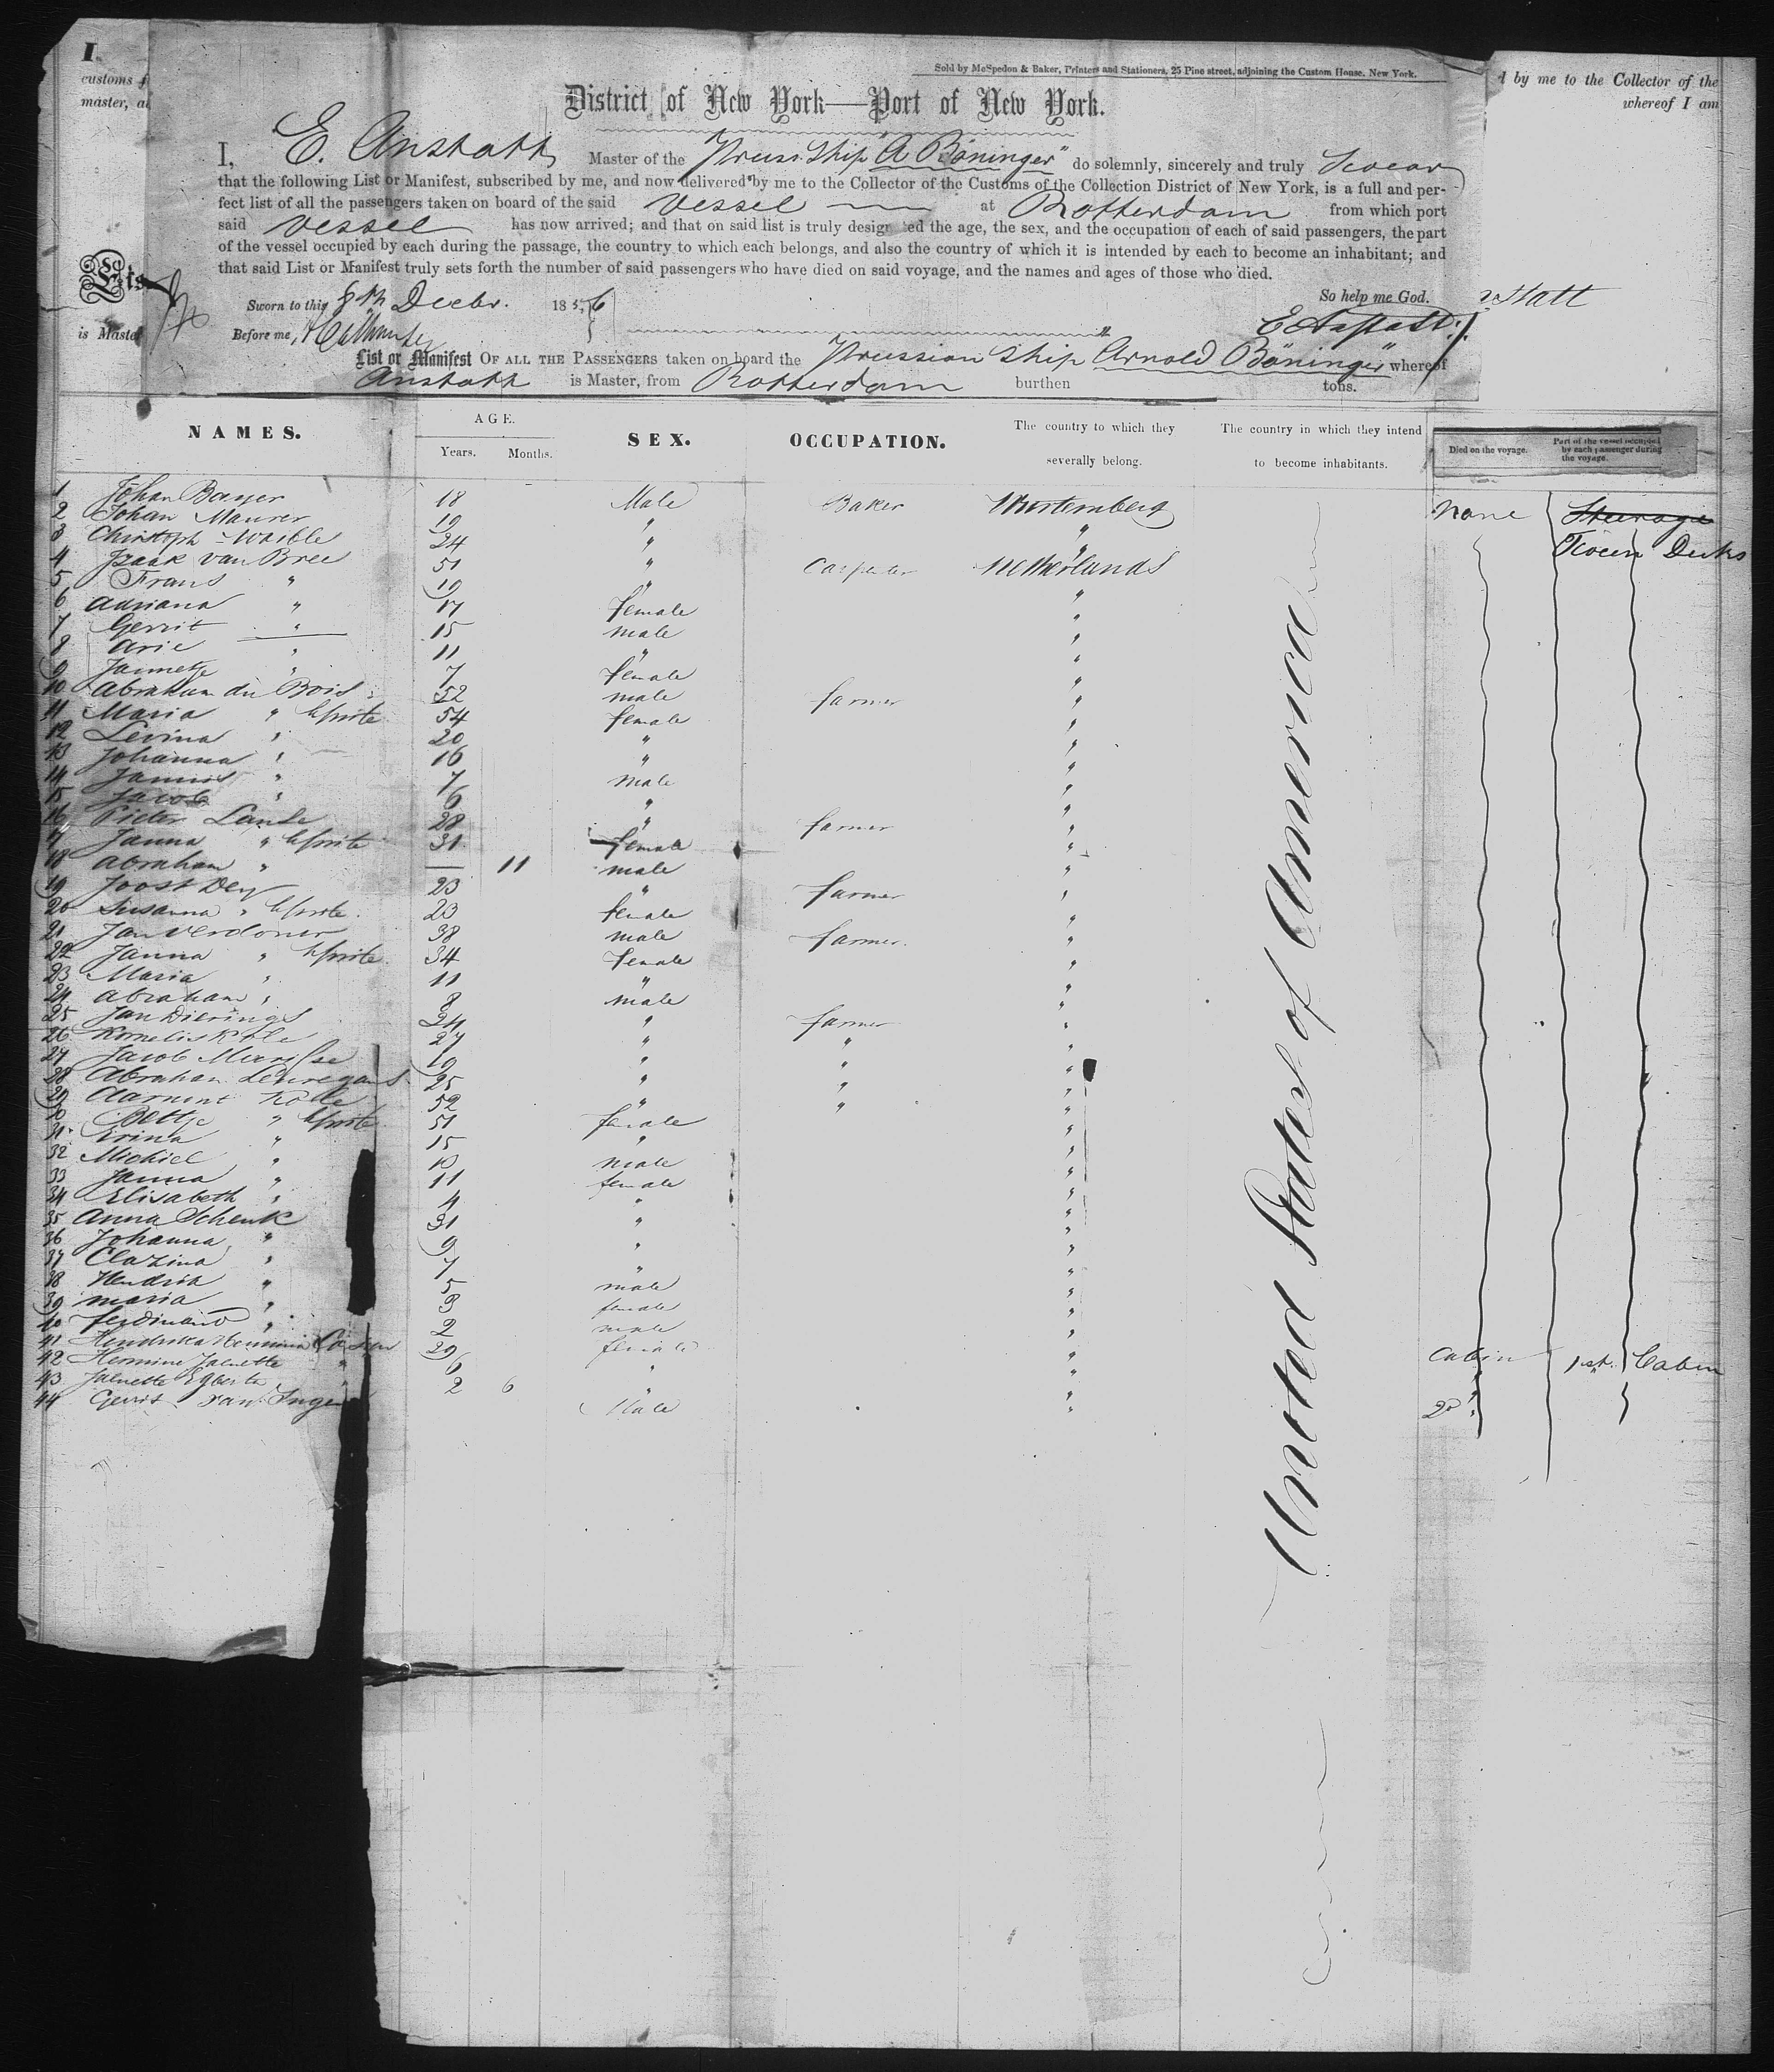 I.
customs
master,
Sold by McSpedon & Baker, Printers and Stationers, 25 Pine street, adjoining the Custom House. New York.
d by me to the Collector of the
whereof I am
District of New York—Port of New York.
I, E. Anstatt Master of the Pruss. Ship "A Böninger" do solemnly, sincerely and truly swear
that the following List or Manifest, subscribed by me, and now delivered by me to the Collector of the Customs of the Collection District of New York, is a full and per-
fect list of all the passengers taken on board of the said vessel at Rotterdam from which port
said vessel has now arrived; and that on said list is truly designated the age, the sex, and the occupation of each of said passengers, the part
of the vessel occupied by each during the passage, the country to which each belongs, and also the country of which it is intended by each to become an inhabitant; and
that said List or Manifest truly sets forth the number of said passengers who have died on said voyage, and the names and ages of those who died.
Lis
is Master
Sworn to this 8th Decbr. 1856 So help me God.
statt
Before me, E Anstatt
List or Manifest OF ALL THE PASSENGERS taken on board the Prussian Ship "Arnold Böninger" whereof
Anstatt is Master, from Rotterdam burthen tons.
NAMES. AGE. Years. Months. SEX. OCCUPATION. The country to which they severally belong. The country in which they intend to become inhabitants. Died on the voyage. Part of the vessel occupied by each passenger during the voyage.
1 Johan Bayer 18 Male Baker Wurtemberg None Steerage
2 Johan Maurer 19 " "
3 Christoph Waible 24 " " Tween Decks
4 Izaak van Bree 51 " Carpenter Netherlands
5 Frans " 19 " "
6 Adriana " 17 female "
7 Gerrit " 15 male "
8 Arie " 11 " "
9 Jannetje " 7 female "
10 Abraham du Bois 52 male farmer "
11 Maria " 54 female "
12 Levina " 20 " "
13 Johanna " 16 " "
14 Jannis " 7 male "
15 Jacob " 6 " "
16 Pieter 28 " farmer "
17 Janna " 31 female "
18 Abraham " — 11 male "
19 Joost Dey 23 " farmer "
20 Susanna " 23 female "
21 Jan Verdoner 38 male farmer "
22 Janna " 34 female "
23 Maria " 11 " "
24 Abraham " 8 male "
25 Jan Dierings 24 " farmer "
26 Kornelis Kole 27 " " "
27 Jacob 19 " " "
28 Abraham 25 " " "
29 52 " " "
30 " 51 female "
31 " 15 " "
32 Michiel " male "
33 Janna " 11 female "
34 Elisabeth " 4 " "
35 Anna Schenk 31 " "
36 Johanna " 9 " "
37 Clazina " 7 " "
38 Hendrik " 5 male "
39 Maria " 3 female "
40 Ferdinand " 2 male "
41 Hendrika 29 female " Cabin 1st Cabin
42 Hermine " 6 " " "
43 " 2 6 " " "
44 Gerrit van Male " 2d "
United States of America